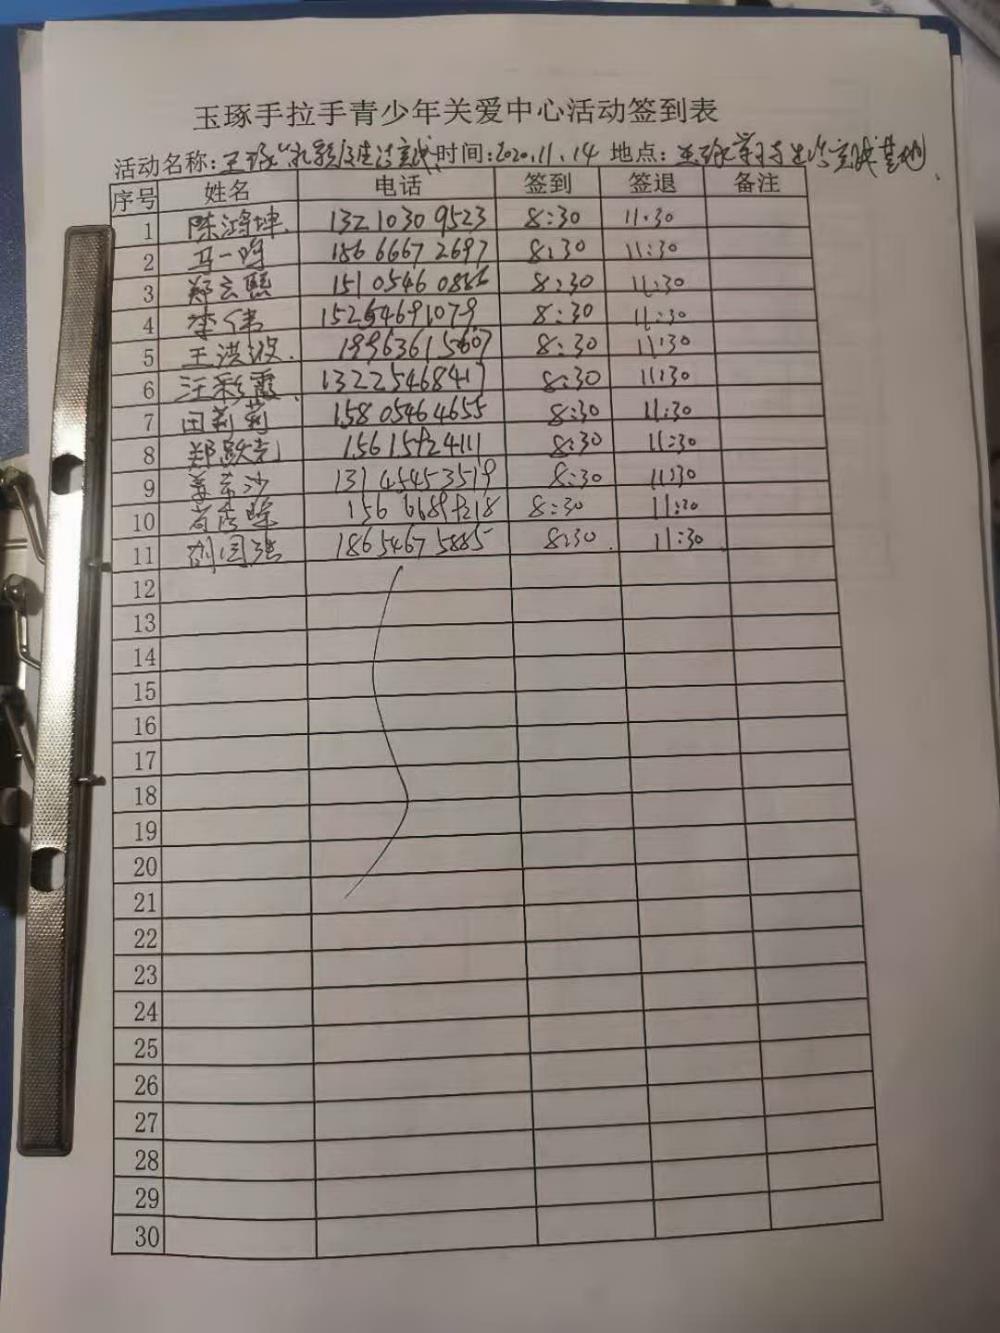 玉琢手拉手青少年关爱中心活动签到表
活动名称: 玉琢 时间: 2020.11.14 地点: 玉琢学习与生活实践基地
序号 姓名 电话 签到 签退 备注
1 陈鸿坤 132 1030 9523 8:30 11:30
2 马一鸣 186 6667 2697 8:30 11:30
3 郑云熙 151 0546 0886 8:30 11:30
4 李伟 15254691079 8:30 11:30
5 王洪波 19963615607 8:30 11:30
6 汪彩霞 13225468417 8:30 11:30
7 田莉莉 158 0546 4655 8:30 11:30
8 郑跃光 8:30 11:30
9 131 4545 3519 8:30 11:30
10 8:30 11:30
11 胡国强 186 5467 5885 8:30 11:30
12
13
14
15
16
17
18
19
20
21
22
23
24
25
26
27
28
29
30